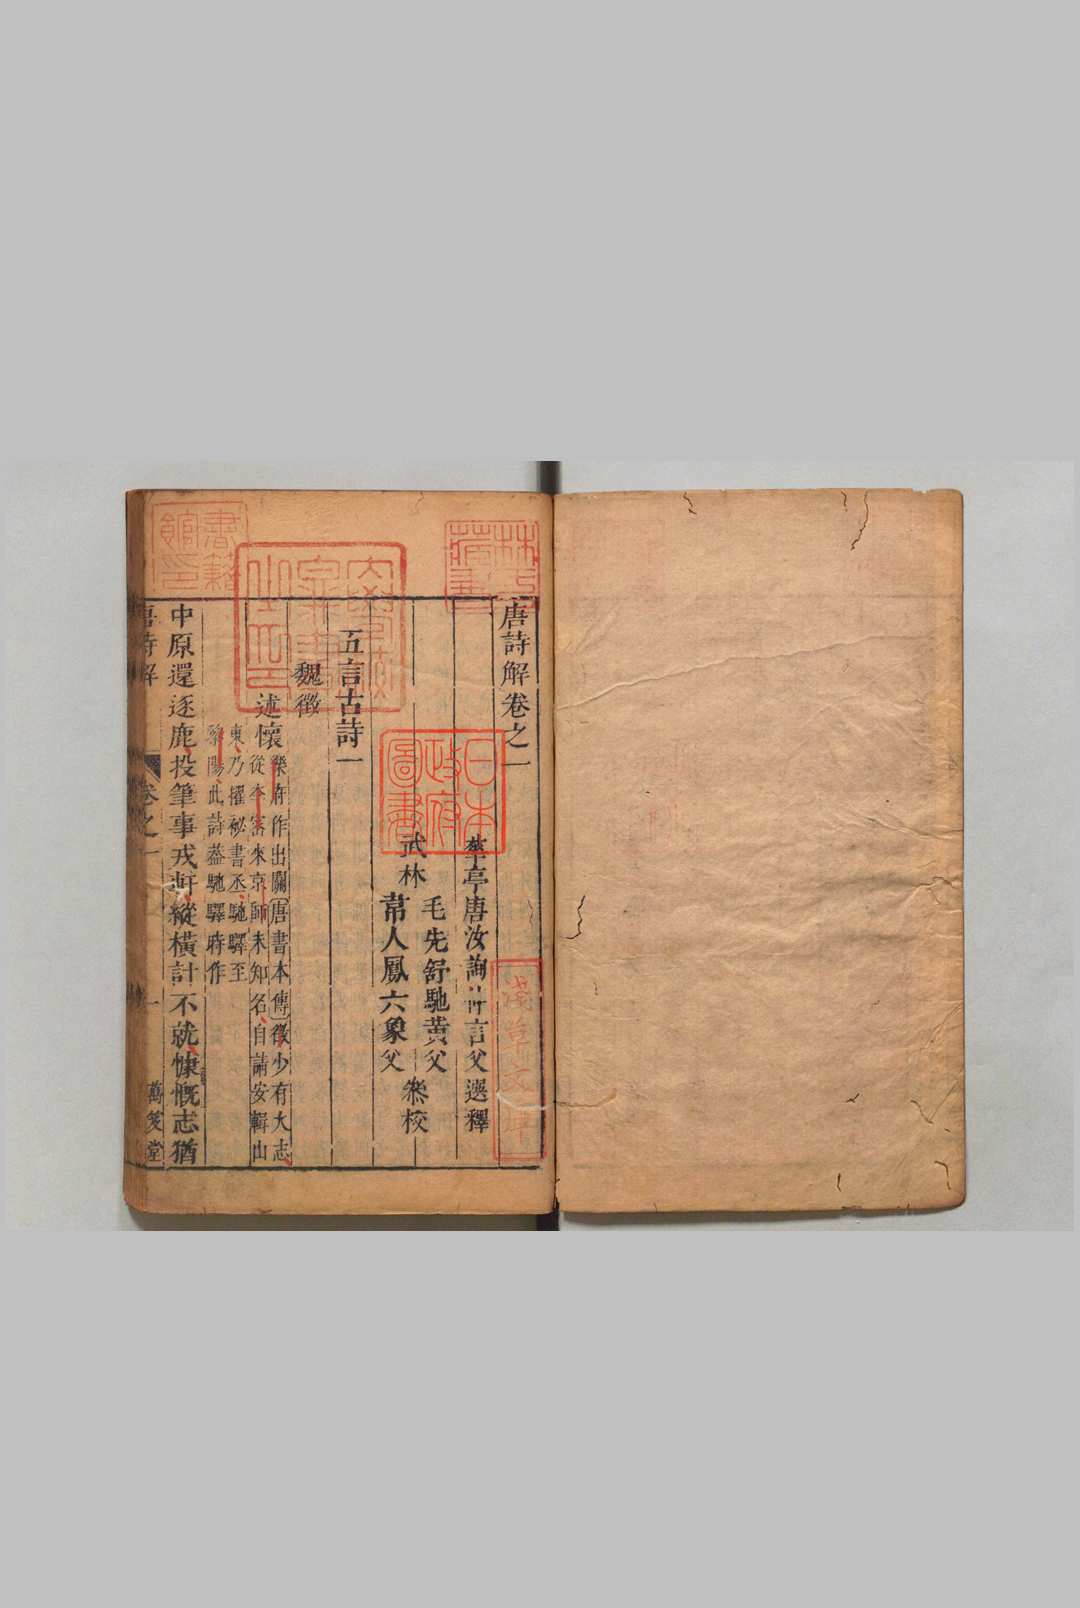 唐詩解卷之一
華亭唐汝詢仲言父選釋
毛先舒馳黃父
武林 叅校
常人鳳六象父
五言古詩一
魏徵
述懷
樂府作出關唐書本傳徵少有大志
從李密來京師未知名自請安輯山
東乃擢秘書丞馳驛至
黎陽此詩葢馳驛時作
中原還逐鹿投筆事戎軒縱橫計不就慷慨志猶
唐詩解 卷之一 一 萬笈堂
書籍館印
林氏藏書
日本政府圖書
淺草文庫